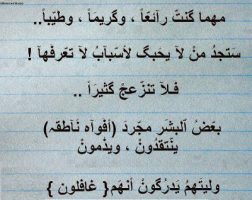 مهما گنتَ رآئعاً ، وگريماً ، وطيّباً ..
ستجدُ منْ لآ يحبگ لأسبآبٌ لآ تعرفهآ !
فـلآ تنزعجْ گثيرَاً ..
بعضُ آلبشر مجردَ (أفوآه نَآطقه)
ينْتقدُونْ ، ويذمونْ
وليتهُم يدَرگونَ أنهم { غافلون }